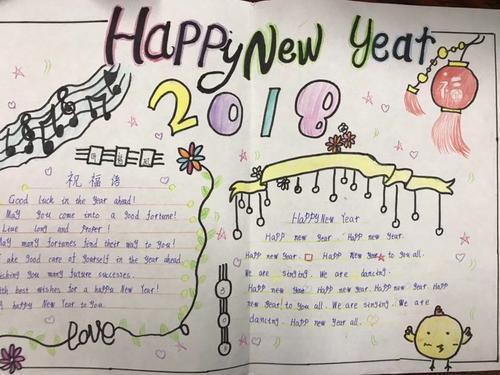 Happy New Year
2018
福
祝福语
Good luck in the year ahead!
May you come into a good fortune!
Live long and proper!
May many fortunes find their way to you!
Take good care of yourself in the year ahead.
Wishing you many future successes.
With best wishes for a happy New Year!
A happy New Year to you.
love
Happy New Year
Happ new year. Happ new year.
Happ new year. Happ New Year to you all.
We are singing. We are dancing.
Happ new year. Happ new year. Happ new year. Happ
new year! to you all. We are singing. We are
dancing. Happ new year all.